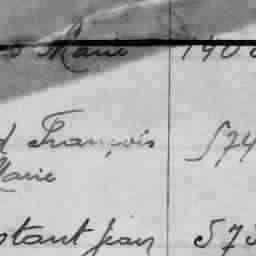 Marie 190
François 574
Marie
stant Jean 573